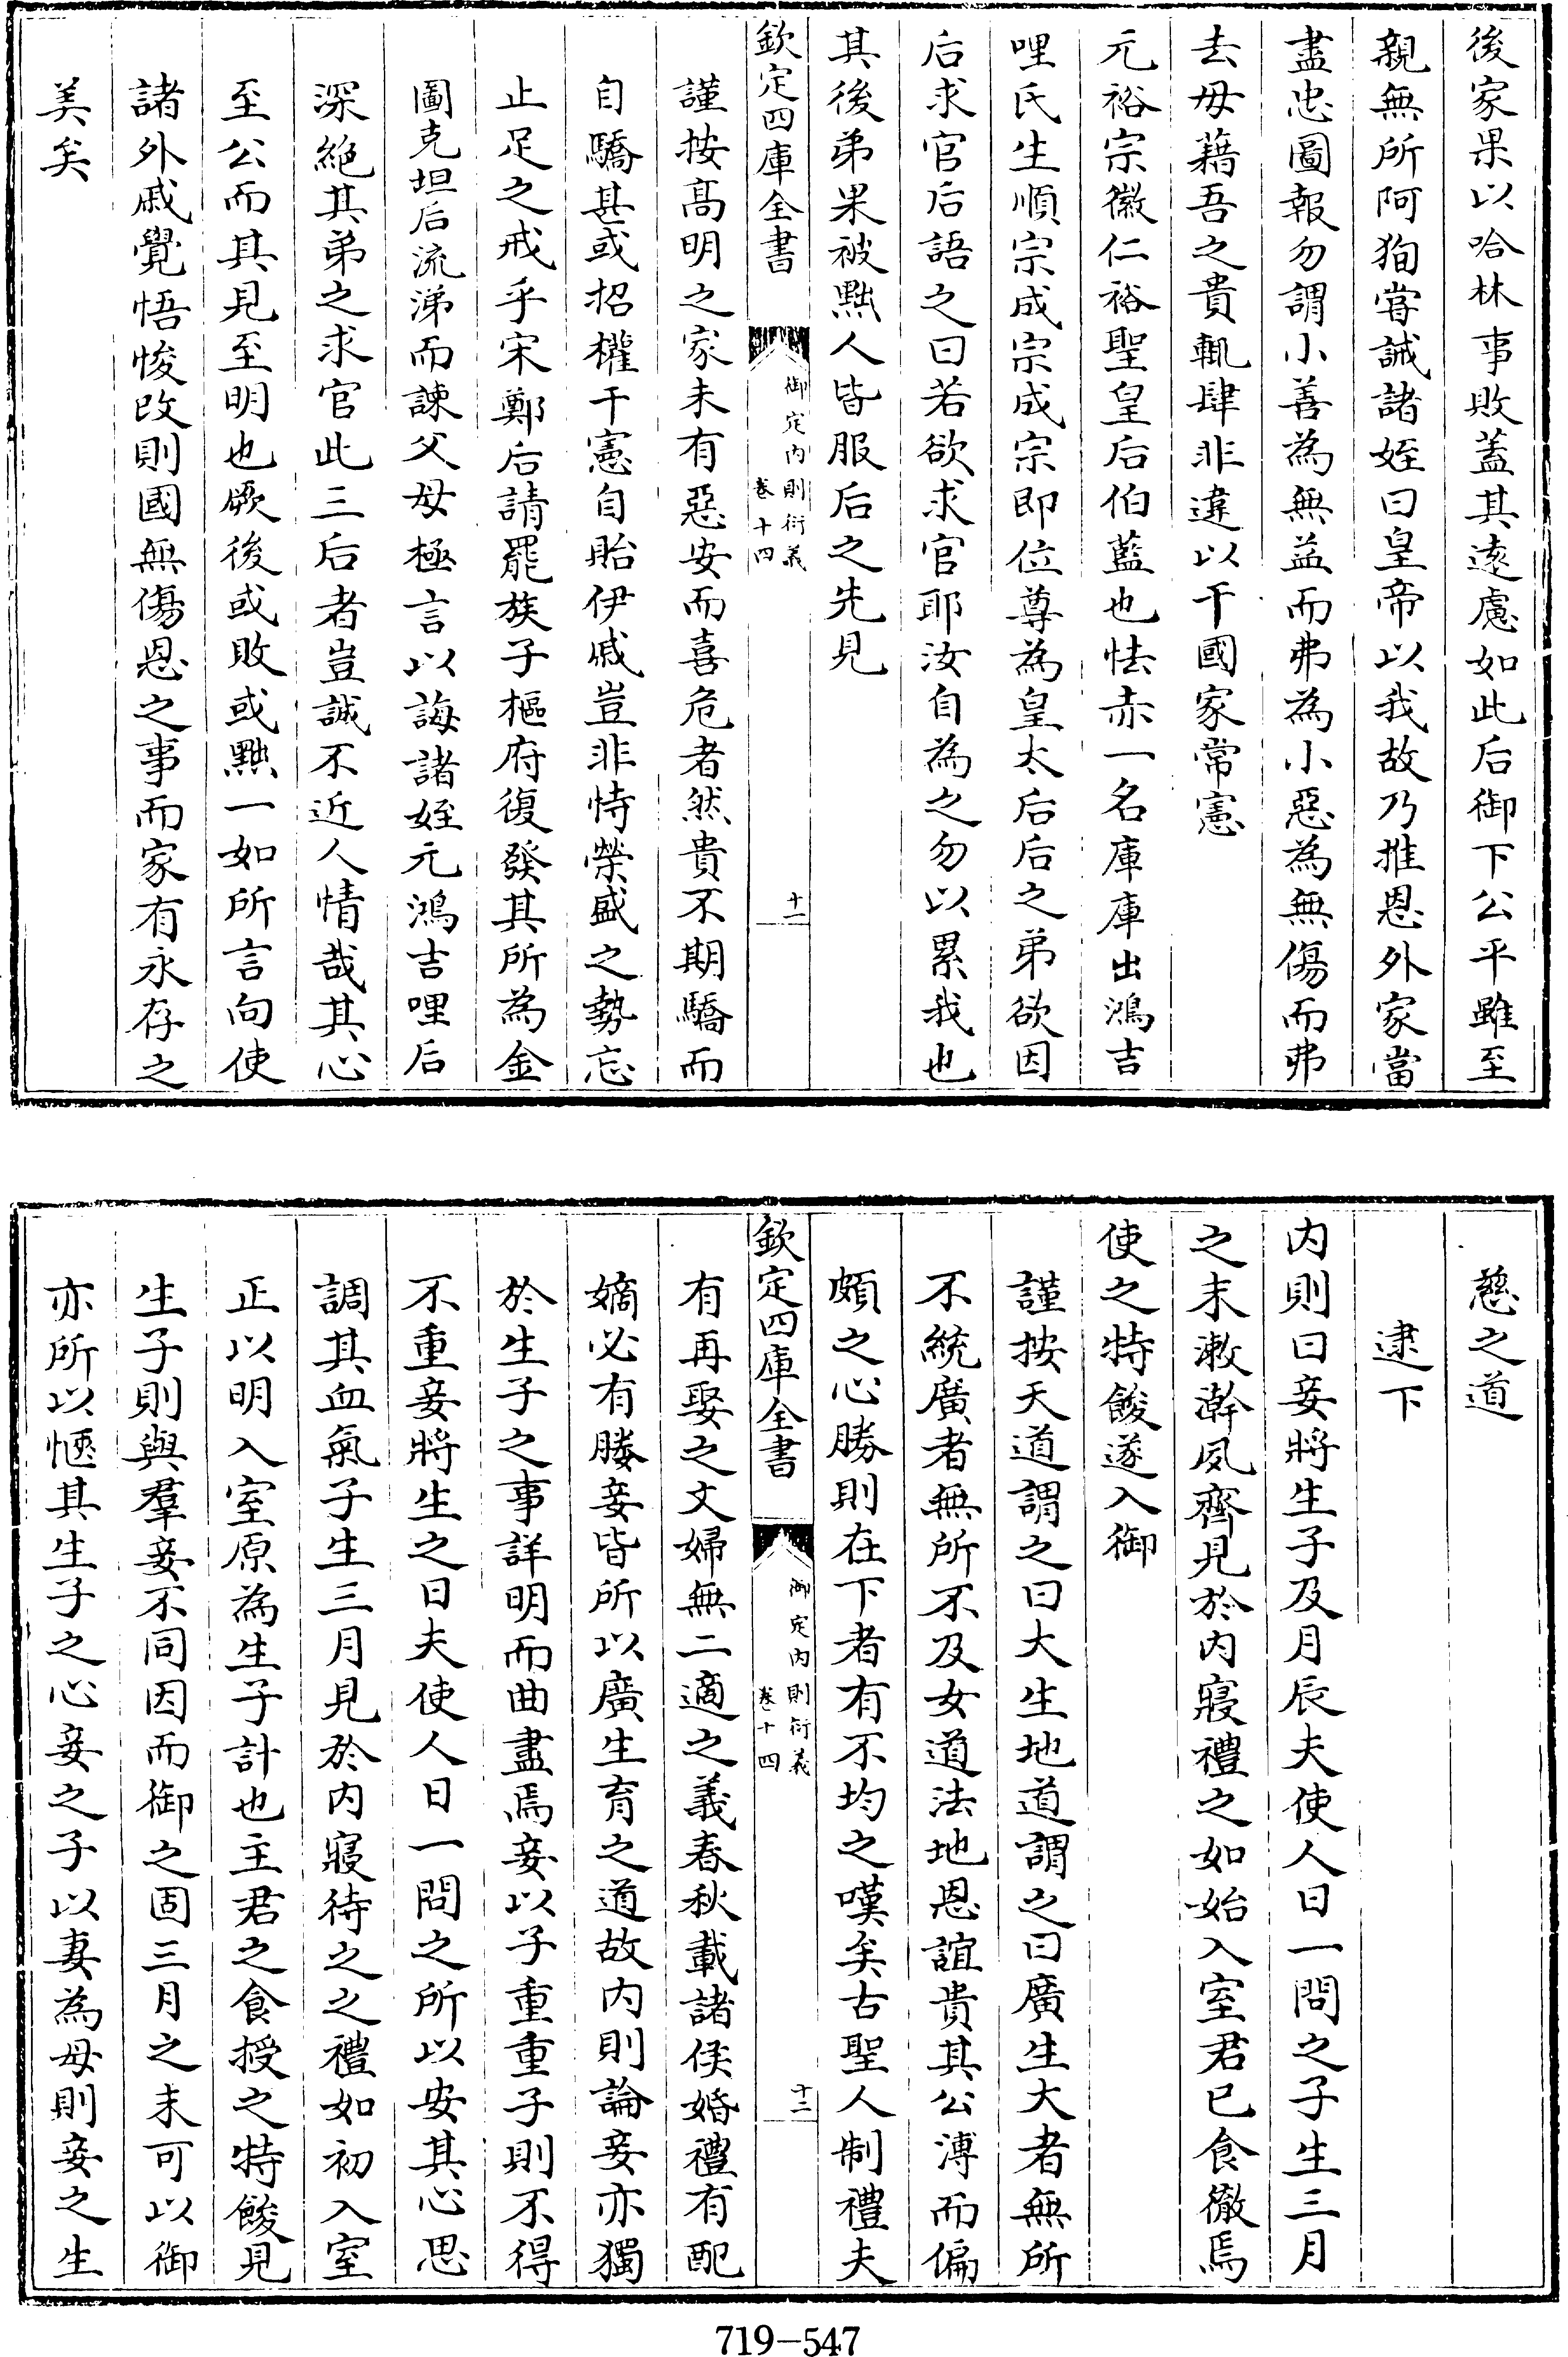 後家果以哈林事敗蓋其遠慮如此后御下公平雖至
親無所阿狥嘗誡諸姪曰皇帝以我故乃推恩外家當
盡忠圖報勿謂小善為無益而弗為小惡為無傷而弗
去毋藉吾之貴輒肆非違以干國家常憲
元裕宗徽仁裕聖皇后伯藍也怯赤一名庫庫出鴻吉
哩氏生順宗成宗成宗即位尊為皇太后后之弟欲因
后求官后語之曰若欲求官耶汝自為之勿以累我也
其後弟果被黜人皆服后之先見
欽定四庫全書
御定內則衍義
卷十四
十一
謹按高明之家未有惡安而喜危者然貴不期驕而
自驕甚或招權干憲自貽伊戚豈非恃榮盛之勢忘
止足之戒乎宋鄭后請罷族子樞府復發其所為金
圖克坦后流涕而諫父母極言以誨諸姪元鴻吉哩后
深絕其弟之求官此三后者豈誠不近人情哉其心
至公而其見至明也厥後或敗或黜一如所言向使
諸外戚覺悟悛改則國無傷恩之事而家有永存之
美矣
慈之道
逮下
內則曰妾將生子及月辰夫使人日一問之子生三月
之末漱澣夙齊見於內寢禮之如始入室君已食徹焉
使之特餕遂入御
謹按天道謂之曰大生地道謂之曰廣生大者無所
不統廣者無所不及女道法地恩誼貴其公溥而偏
頗之心勝則在下者有不均之嘆矣古聖人制禮夫
欽定四庫全書
御定內則衍義
卷十四
十二
有再娶之文婦無二適之義春秋載諸侯婚禮有配
嫡必有媵妾皆所以廣生育之道故內則論妾亦獨
於生子之事詳明而曲盡焉妾以子重重子則不得
不重妾將生之日夫使人日一問之所以安其心思
調其血氣子生三月見於內寢待之之禮如初入室
正以明入室原為生子計也主君之食授之特餕見
生子則與羣妾不同因而御之固三月之末可以御
亦所以愜其生子之心妾之子以妻為母則妾之生
719-547